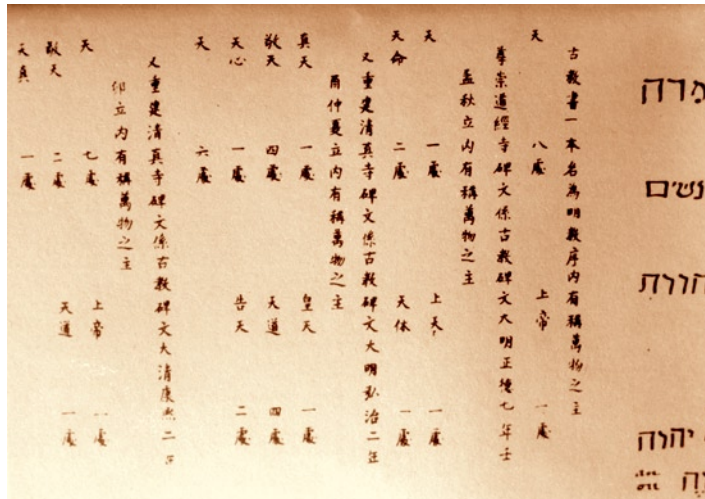 יהוה
古教書一本名為明教序內有稱萬物之主
天 八處 上帝 一處
尊崇道經寺碑文係古教碑文大明正德七年壬
孟秋立內有稱萬物之主
天 一處 上天 一處
天命 二處 天休 一處
又重建清真寺碑文係古教碑文大明弘治二年
酉仲夏立內有稱萬物之主
真天 一處 皇天 一處
敬天 四處 天道 四處
天心 一處 告天 二處
天 六處
又重建清真寺碑文係古教碑文大清康熙二
卯立內有稱萬物之主
天 七處 上帝 一處
敬天 二處 天道 一處
天真 一處